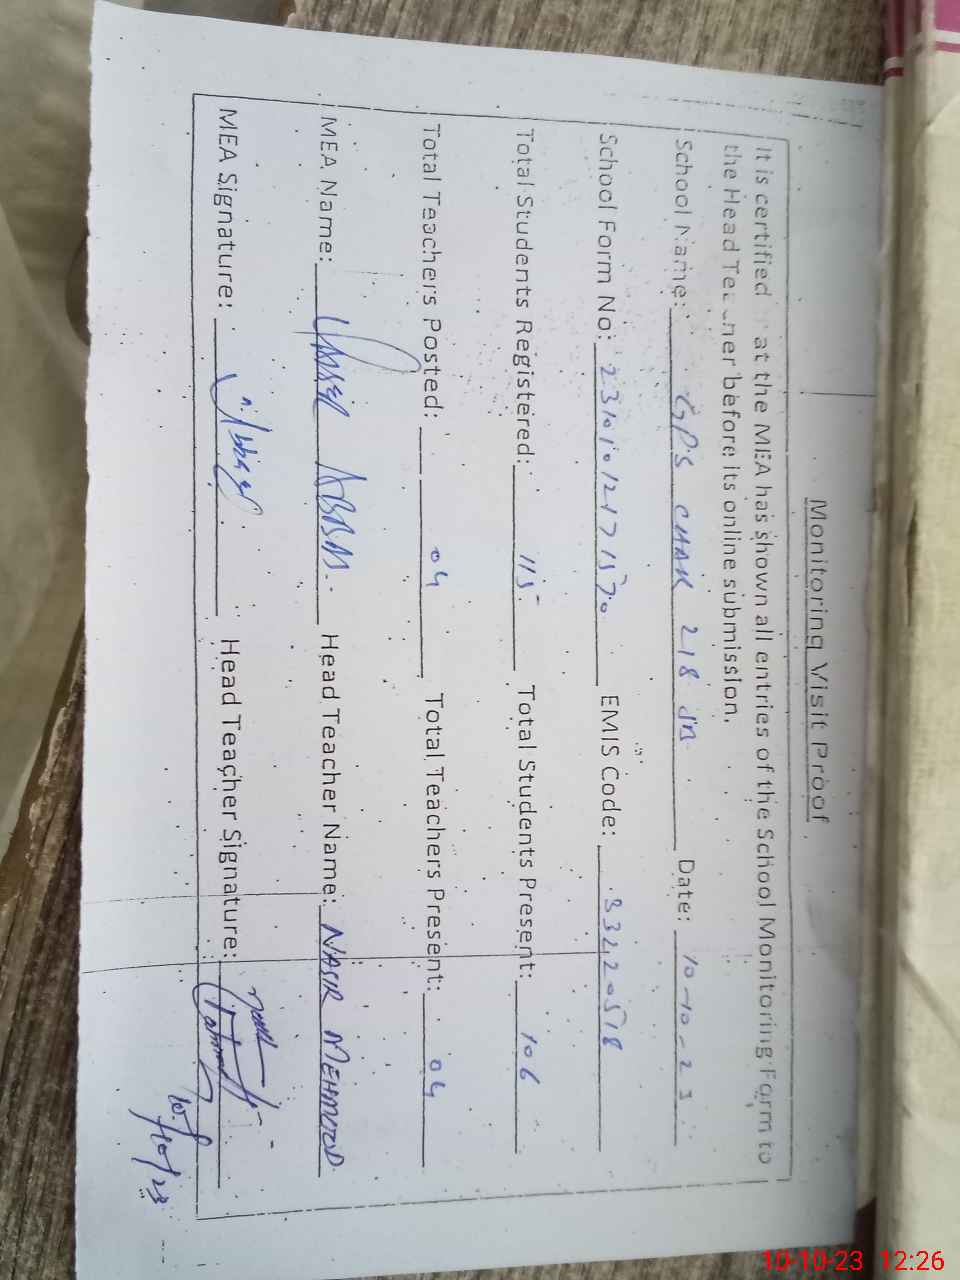 Monitoring Visit Proof
It is certified at the MEA has shown all entries of the School Monitoring Form to
the Head Teacher before its online submission.
School Name: GPS CHAK 218 JB Date: 10-10-23
School Form No: EMIS Code: 33420518
Total Students Registered: 115 Total Students Present: 106
Total Teachers Posted: 04 Total Teachers Present: 04
MEA Name: ABBAS Head Teacher Name: NASIR MEHMOOD
MEA Signature: Head Teacher Signature:
10/10/23
10-10-23 12:26